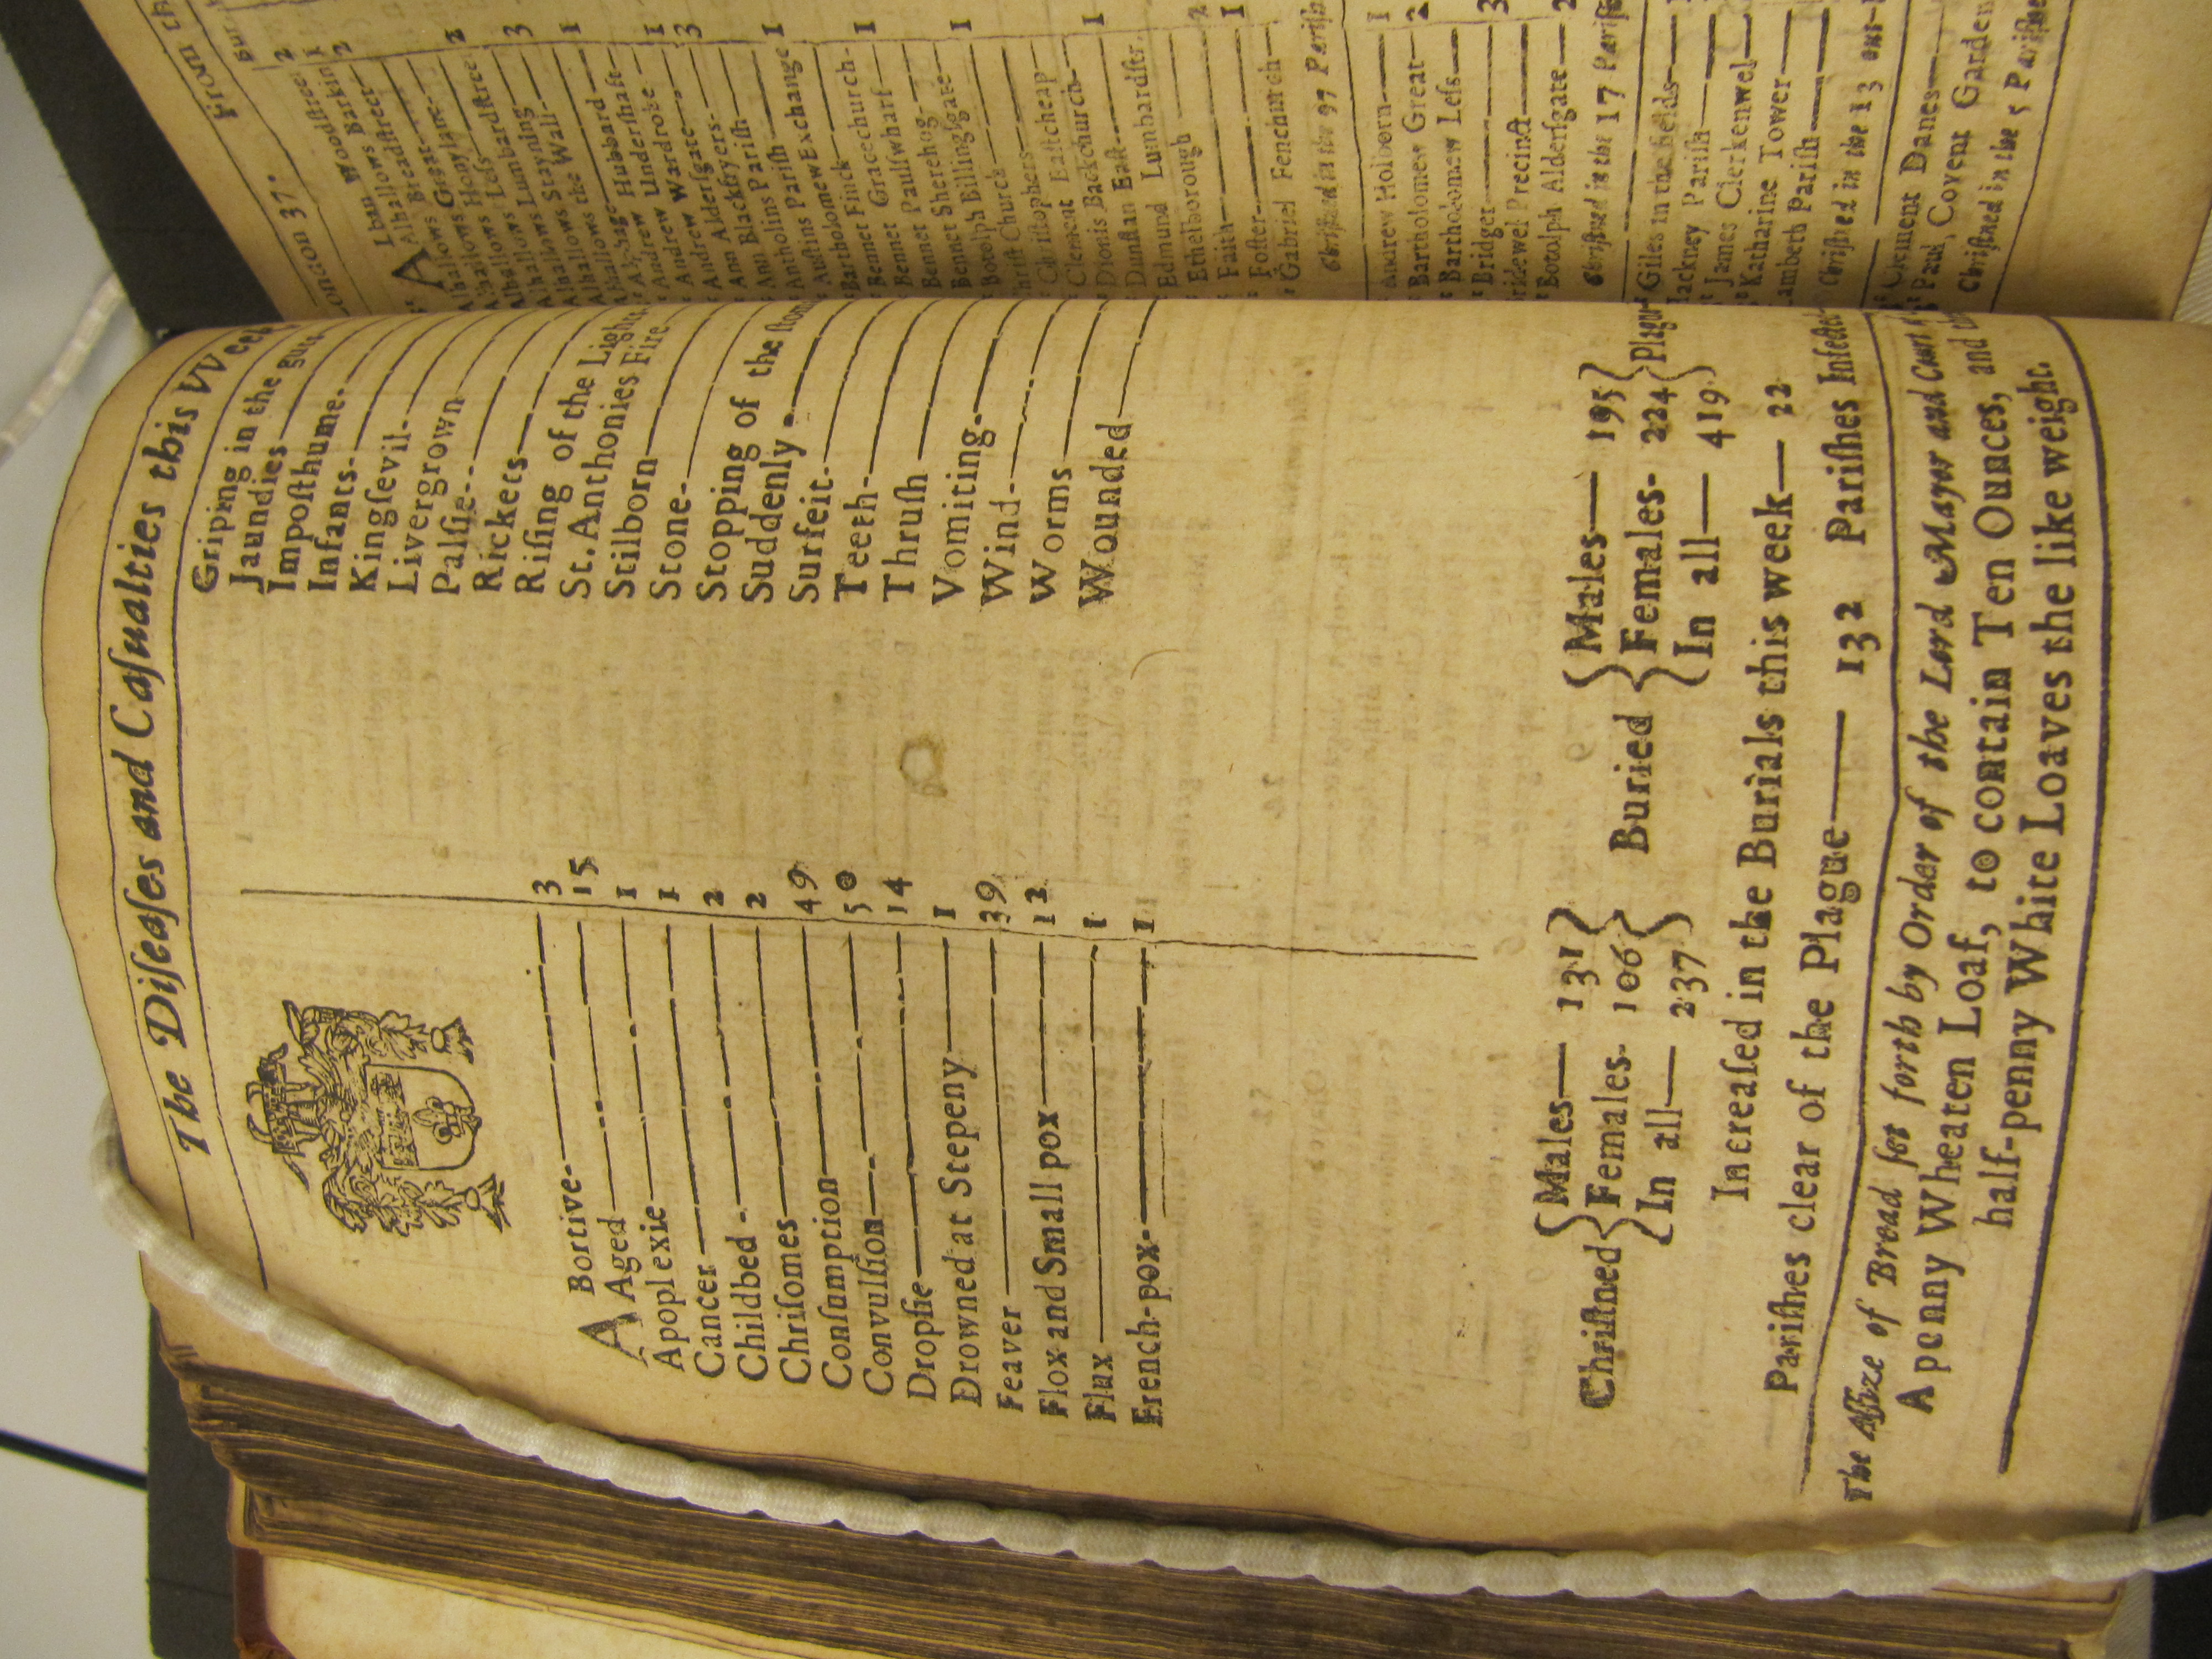 The Diſeaſes and Caſualties this Week
ABortive 3
Aged 15
Apoplexie 1
Cancer 1
Childbed 2
Chriſomes 2
Conſumption 49
Convulſion 50
Dropſie 14
Drowned at Stepeny 1
Feaver 39
Flox and Small pox 12
Flux 1
French-pox 1
Griping in the
Jaundies
Impoſthume
Infants
Kingſevil
Livergrown
Palſie
Rickets
Riſing of the Lights
St. Anthonies Fire
Stilborn
Stone
Stopping of the
Suddenly
Surfeit
Teeth
Thruſh
Vomiting
Wind
Worms
Wounded
Chriſtned { Males — 131 Females - 106 In all — 237 }
Buried { Males — 195 Females - 224 In all — 419 } Plague
Increaſed in the Burials this week — 22
Pariſhes clear of the Plague — 132 Pariſhes Infected
The Aſſize of Bread ſet forth by Order of the Lord Mayor and Court
A penny Wheaten Loaf, to contain Ten Ounces, and
half-penny White Loaves the like weight.
London 37.
From the
Bur
Alban Woodſtreet 2
Alhallows Barkin 1
Alhallows Breadſtreet 2
Alhallows Great
Alhallows Honylane
Alhallows Leſs 2
Alhallows Lumbardſtreet
Alhallows Stayning 3
Alhallows the Wall 1
Alphage
Andrew Hubbard
Andrew Underſhaft 1
Andrew Wardrobe 3
Ann Alderſgate
Ann Blackfryers
Antholins Pariſh 1
Auſtins Pariſh
Bartholomew Exchange
Bennet Finck
Bennet Gracechurch 1
Bennet Paulſwharf
Bennet Sherehog
Botolph Billingſgate 1
Chriſt Church
Chriſtophers
Clement Eaſtcheap
Dionis Backchurch 1
Dunſtan Eaſt
Edmund Lumbardſtr.
Ethelborough 2
Faith
Foſter 1
Gabriel Fenchurch
Chriſtned in the 97 Pariſh
Andrew Holborn 1
Bartholomew Great 2
Bartholomew Leſs
Bridget 3
Bridewel Precinct
Botolph Alderſgate 2
Chriſtned in the 17 Pariſh
Giles in the fields
Hackney Pariſh
James Clerkenwel
Katharine Tower
Lambeth Pariſh
Chriſtned in the 13 out-
Clement Danes
Paul Covent Garden
Chriſtned in the 5 Pariſhe